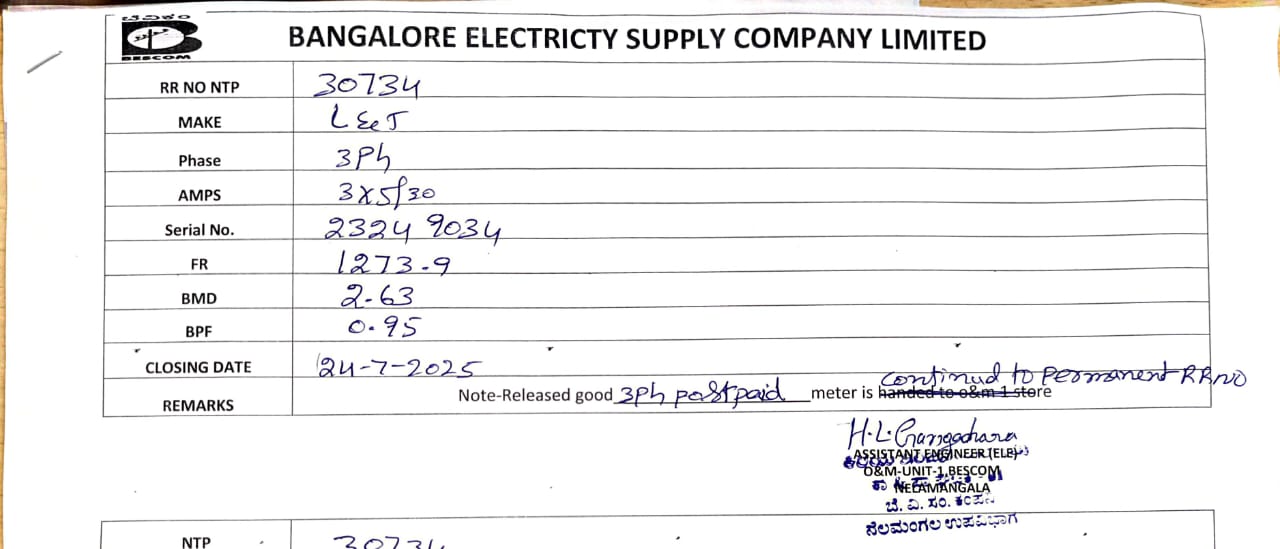 ಬೆವಿಕಂ
BESCOM
BANGALORE ELECTRICTY SUPPLY COMPANY LIMITED
RR NO NTP 30734
MAKE L&T
Phase 3Ph
AMPS 3X5/30
Serial No. 23249034
FR 1273.9
BMD 2.63
BPF 0.95
CLOSING DATE 24-7-2025
continud to permanent RRNO
REMARKS Note-Released good 3Ph postpaid meter is handed to o&m 1 store
H.L. Gangadhara
ASSISTANT ENGINEER (ELE)
O&M-UNIT-1,BESCOM
NELAMANGALA
ಬೆ. ವಿ. ಸಂ. ಕಂಪನಿ
ನೆಲಮಂಗಲ ಉಪವಿಭಾಗ
NTP 30734